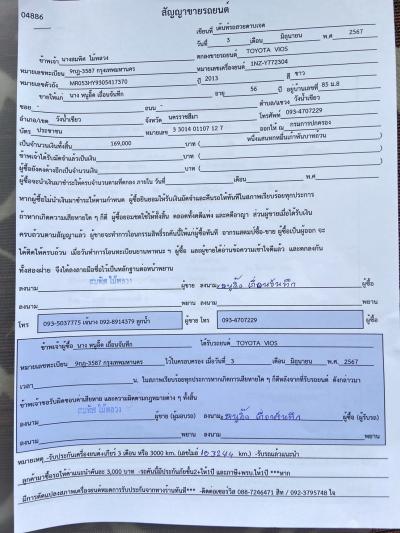 04886
สัญญาขายรถยนต์
เขียนที่ เต้นท์รถสวยตาบเจต
วันที่ 3 เดือน มิถุนายน พ.ศ 2567
ข้าพเจ้า นางสมทิศ ไม้หลวง ตกลงขายรถยนต์ TOYOTA VIOS
หมายเลขทะเบียน 9กฎ-3587 กรุงเทพมหานคร หมายเลขเครื่องยนต์ 1NZ-Y772304
หมายเลขตัวถัง MR053HY9305417370 ปี 2013 สี ขาว
ขายให้แก่ นาง หนูอี๊ด เถื่อนจันทึก อายุ 56 ปี อยู่บ้านเลขที่ 85 ม.8
ซอย - ถนน - ตำบล/แขวง วังน้ำเขียว
อำเภอ/เขต วังน้ำเขียว จังหวัด นครราชสีมา โทรศัพท์ 093-4707229
บัตร ประชาชน หมายเลข 3 3014 01107 12 7 ออกให้ ณ กรมการปกครอง
เป็นจำนวนเงินทั้งสิ้น 169,000 บาท ( หนึ่งแสนหกหมื่นเก้าพันบาทถ้วน )
ข้าพเจ้าได้รับมัดจำแล้วเป็นเงิน บาท ( )
ผู้ซื้อยังคงค้างอีกเป็นจำนวนเงิน บาท ( )
ผู้ซื้อจะนำเงินมาชำระให้ครบจำนวนตามที่ตกลง ภายใน วันที่ เดือน พ.ศ
หากผู้ซื้อไม่นำเงินมาชำระให้ตามกำหนด ผู้ซื้อยินยอมให้ริบเงินมัดจำและคืนรถให้ทันทีในสภาพเรียบร้อยทุกประการ
ถ้าหากเกิดความเสียหายใด ๆ ก็ดี ผู้ซื้อยอมชดใช้ให้ทั้งสิ้น ตลอดทั้งคดีแพ่ง และคดีอาญา ส่วนผู้ขายเมื่อได้รับเงิน
ครบถ้วนตามสัญญาแล้ว ผู้ขายจะทำการโอนกรรมสิทธิ์รถคันนี้ให้แก่ผู้ซื้อทันที อากรแสตมป์ซื้อ-ขาย ผู้ซื้อเป็นผู้ออก จะ
ได้คิดให้ครบถ้วน เมื่อวันทำการโอนทะเบียนยานพาหนะ ๆ ผู้ซื้อ และผู้ขายได้อ่านข้อความเข้าใจดีแล้ว และตกลงกัน
ทั้งสองฝ่าย จึงได้ลงลายมือชื่อไว้เป็นหลักฐานต่อหน้าพยาน
ลงนาม สมทิศ ไม้หลวง ผู้ขาย ลงนาม หนูอี๊ด เถื่อนจันทึก ผู้ซื้อ
ลงนาม พยาน ลงนาม พยาน
โทร 093-5037775 เจ้นาง 092-8914379 ลูกน้ำ ผู้ขาย โทร 093-4707229 ผู้ซื้อ
ข้าพเจ้าผู้ซื้อ นาง หนูอี๊ด เถื่อนจันทึก ได้รับรถยนต์ TOYOTA VIOS
หมายเลขทะเบียน 9กฎ-3587 กรุงเทพมหานคร ไว้ในครอบครอง เมื่อวันที่ 3 เดือน มิถุนายน พ.ศ 2567
เวลา น. ในสภาพเรียบร้อยทุกประการหากเกิดการเสียหายใด ๆ ก็ดีหลังจากที่รับรถยนต์ ดังกล่าวมา
ข้าพเจ้าขอรับผิดชอบค่าเสียหาย และความผิดตามกฎหมายต่าง ๆ ทั้งสิ้น
ลงนาม สมทิศ ไม้หลวง ผู้ขาย (ผู้มอบรถ) ลงนาม หนูอี๊ด เถื่อนจันทึก ผู้ซื้อ (ผู้รับรถ)
ลงนาม พยาน ลงนาม พยาน
หมายเหตุ -รับประกันเครื่องยนต์+เกียร์ 3 เดือน หรือ 3000 km. (เลขไมล์ 103244 km.) -รับรถแล้วแนะนำ
ลูกค้ามาซื้อรถให้ค่าแนะนำคันละ 3,000 บาท -รถคันนี้มีประกันภัยชั้น2+ให้1ปี และภาษี+พรบ.ให้1ปี ***หาก
มีการดัดแปลงสภาพเครื่องยนต์หมดการรับประกันจากทางร้านทันที*** -ติดต่อเซอร์วิส 088-7266471 สิท / 092-3795748 ใจ